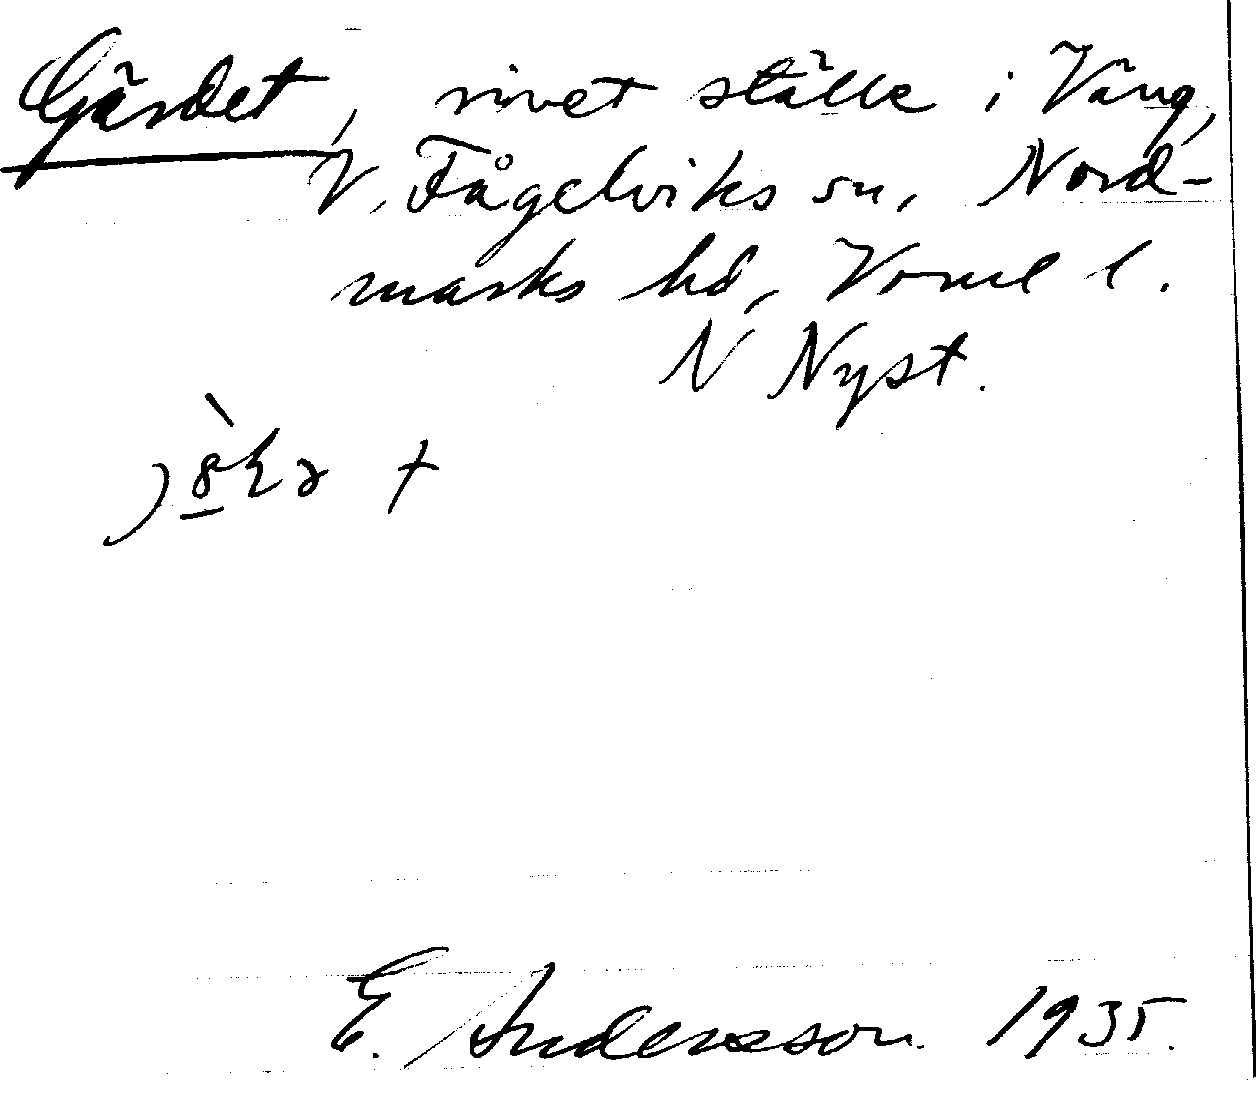 Gärdet, rivet ställe i Väng,
V. Fågelviks sn, Nord-
marks hd, Värml l.
N Nyst.
E. Andersson 1935.